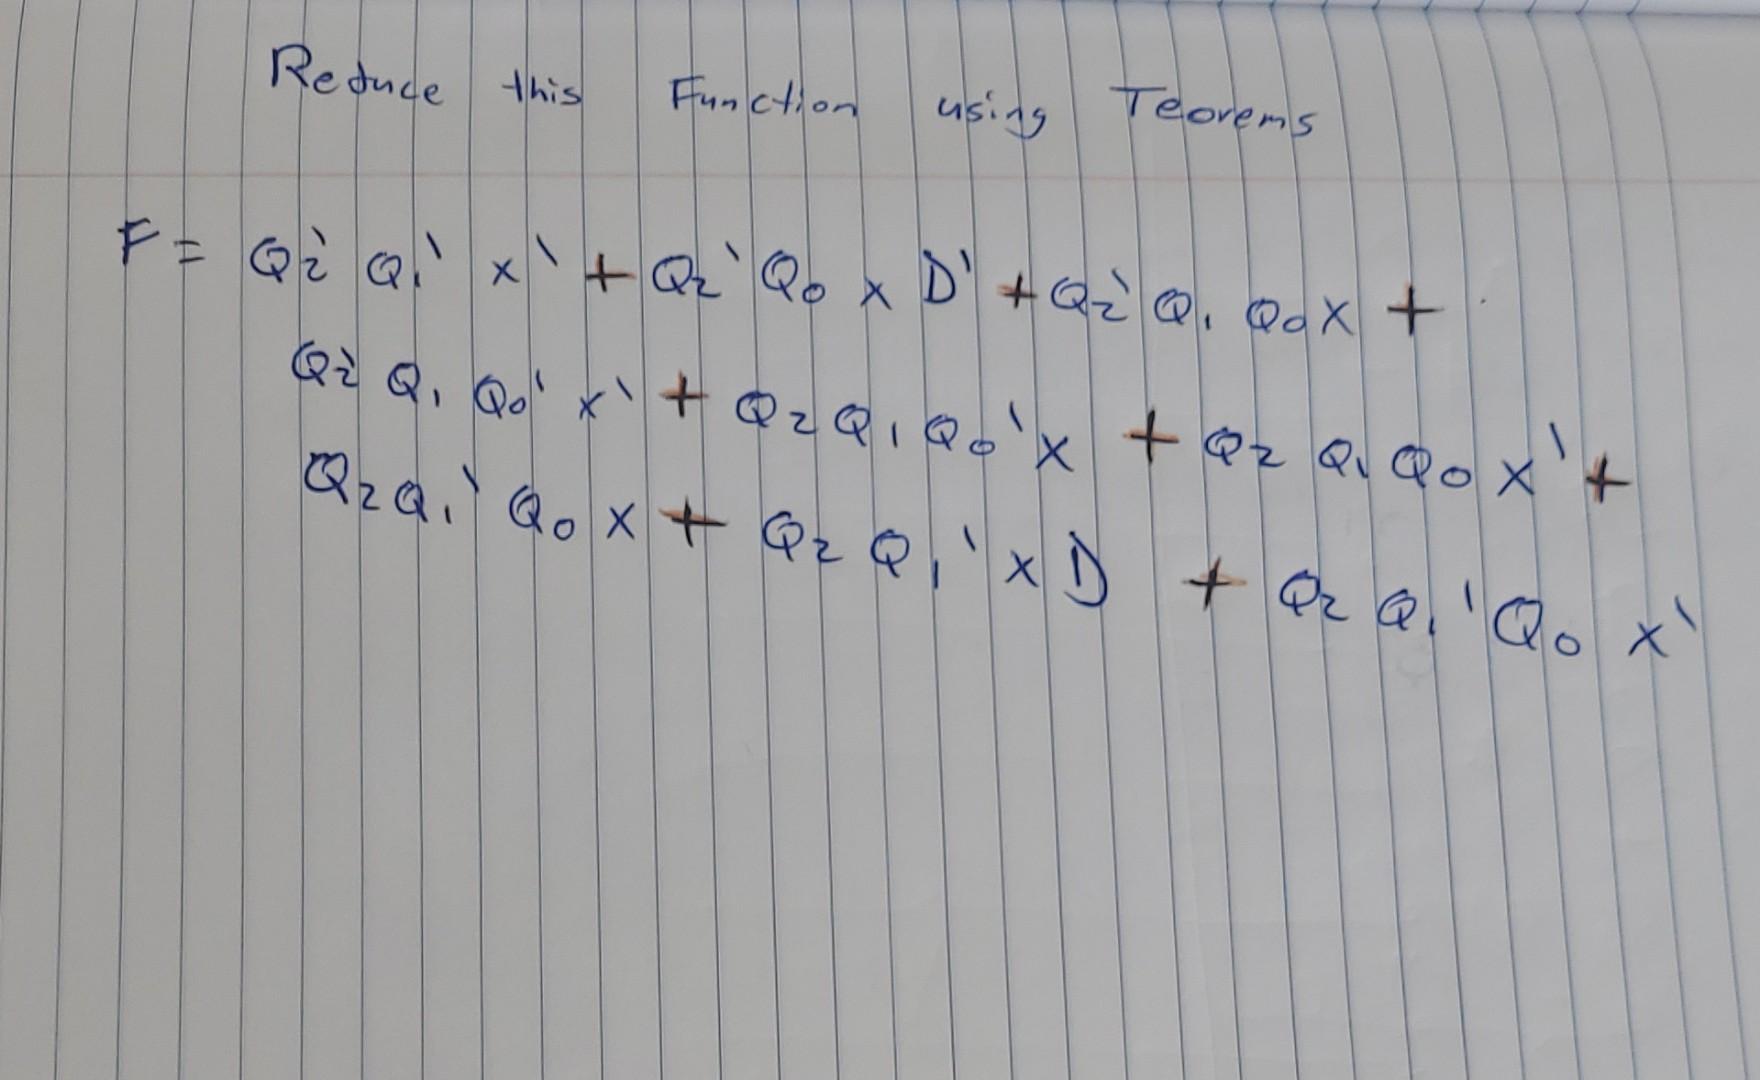 Reduce this Function using Teorems
F = Q2' Q1' x' + Q2' Q0 x D' + Q2' Q1 Q0 x +
Q2' Q1 Q0' x' + Q2 Q1 Q0' x + Q2 Q1 Q0 x' +
Q2 Q1' Q0 x + Q2 Q1' x D + Q2 Q1' Q0 x'